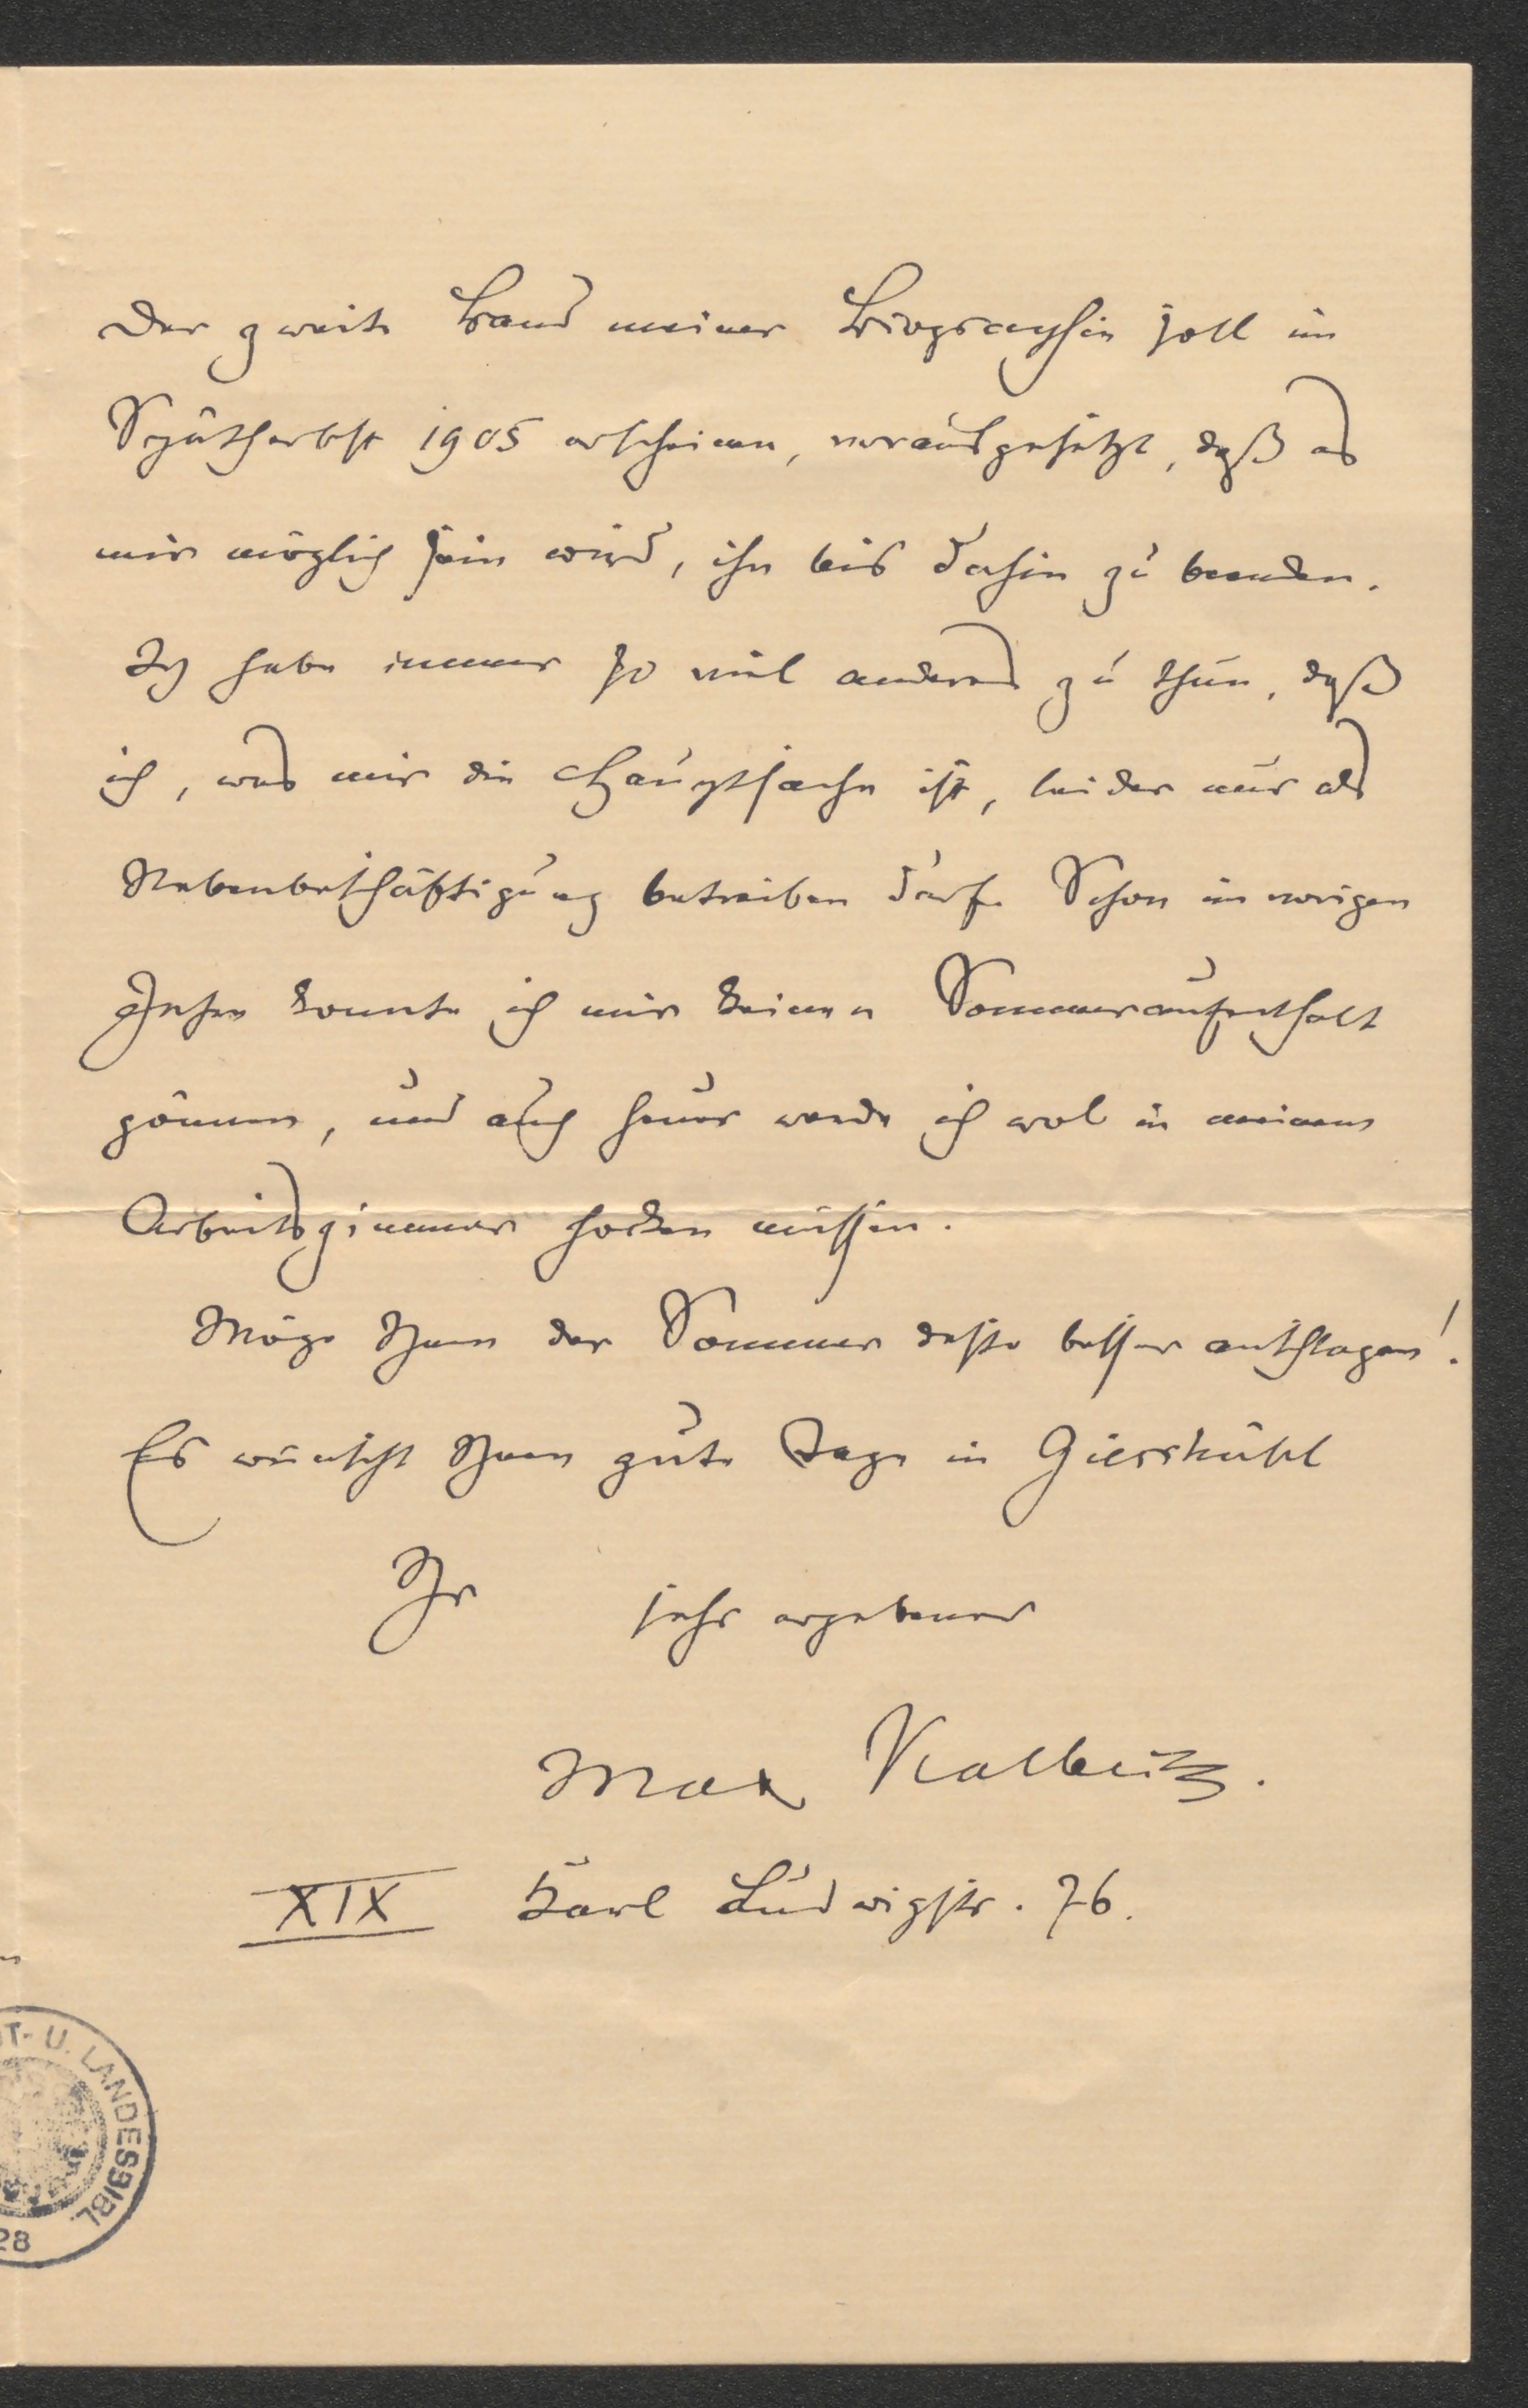 Der zweite Band meiner Biographie soll im
Spätherbst 1905 erscheinen, vorausgesetzt, daß es
mir möglich sein wird, ihn bis dahin zu beenden.
Ich habe immer so viel anderes zu thun, daß
ich, was mir die Hauptsache ist, leider nur als
Nebenbeschäftigung betreiben darf. Schon im vorigen
Jahre konnte ich mir keinen Sommeraufenthalt
gönnen, und auch heuer werde ich wol in meinem
Arbeitszimmer hocken müssen.
Möge Ihnen der Sommer desto besser anschlagen!
Es wünscht Ihnen gute Tage in Giesshübl
Ihr sehr ergebener
Max Kalbeck.
XIX Karl Ludwigstr. 76.
T- U. LANDESBIBL.
28